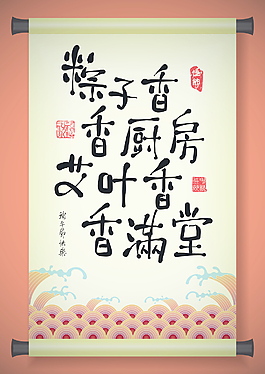 粽子香
香厨房
艾叶香
香滿堂
端午節快樂